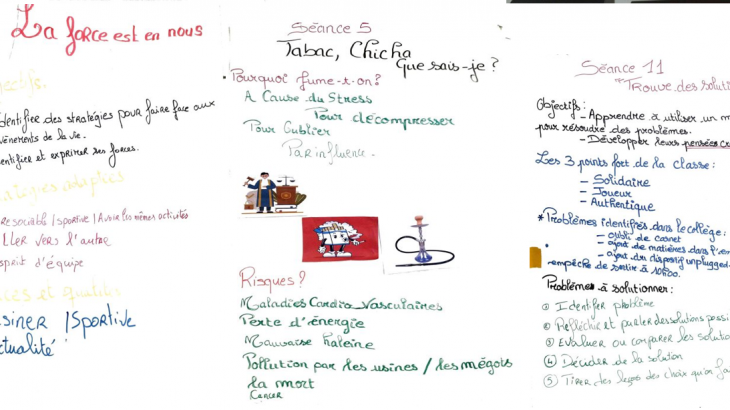 La force est en nous
jectifs.
dentifier des stratégies pour faire face aux
vènements de la vie.
entifier et exprimer ses forces.
ratégies adaptées
re sociable / sportive / Avoir les mêmes activités
ller vers l'autre
sprit d'équipe
siner / Sportive
ctualité
Séance 5
Tabac, Chicha
Que sais-je ?
• Pourquoi fume-t-on ?
A Cause du Stress
Pour décompresser
Pour Oublier
Par influence.
Risques ?
Maladies Cardio Vasculaires
Perte d'énergie
Mauvaise haleine
Pollution par les usines / les mégots
la mort
Cancer
Séance 11
Trouve des soluti
Objectifs :
- Apprendre à utiliser un m
pour résoudre des problèmes.
- Développer leurs pensées cr
Les 3 points fort de la classe :
- Solidaire
- Joueur
- Authentique
* Problèmes identifiés dans le collège :
- oubli de carnet
- ajout de matières dans l'em
- ajout du dispositif unplugged
empêche de sortir à 10h00.
Problèmes à solutionner :
① Identifier problème
② Réfléchir et parler des solutions possi
③ Evaluer ou comparer les solutio
④ Décider de la solution
⑤ Tirer des leçons des choix qu'on fa